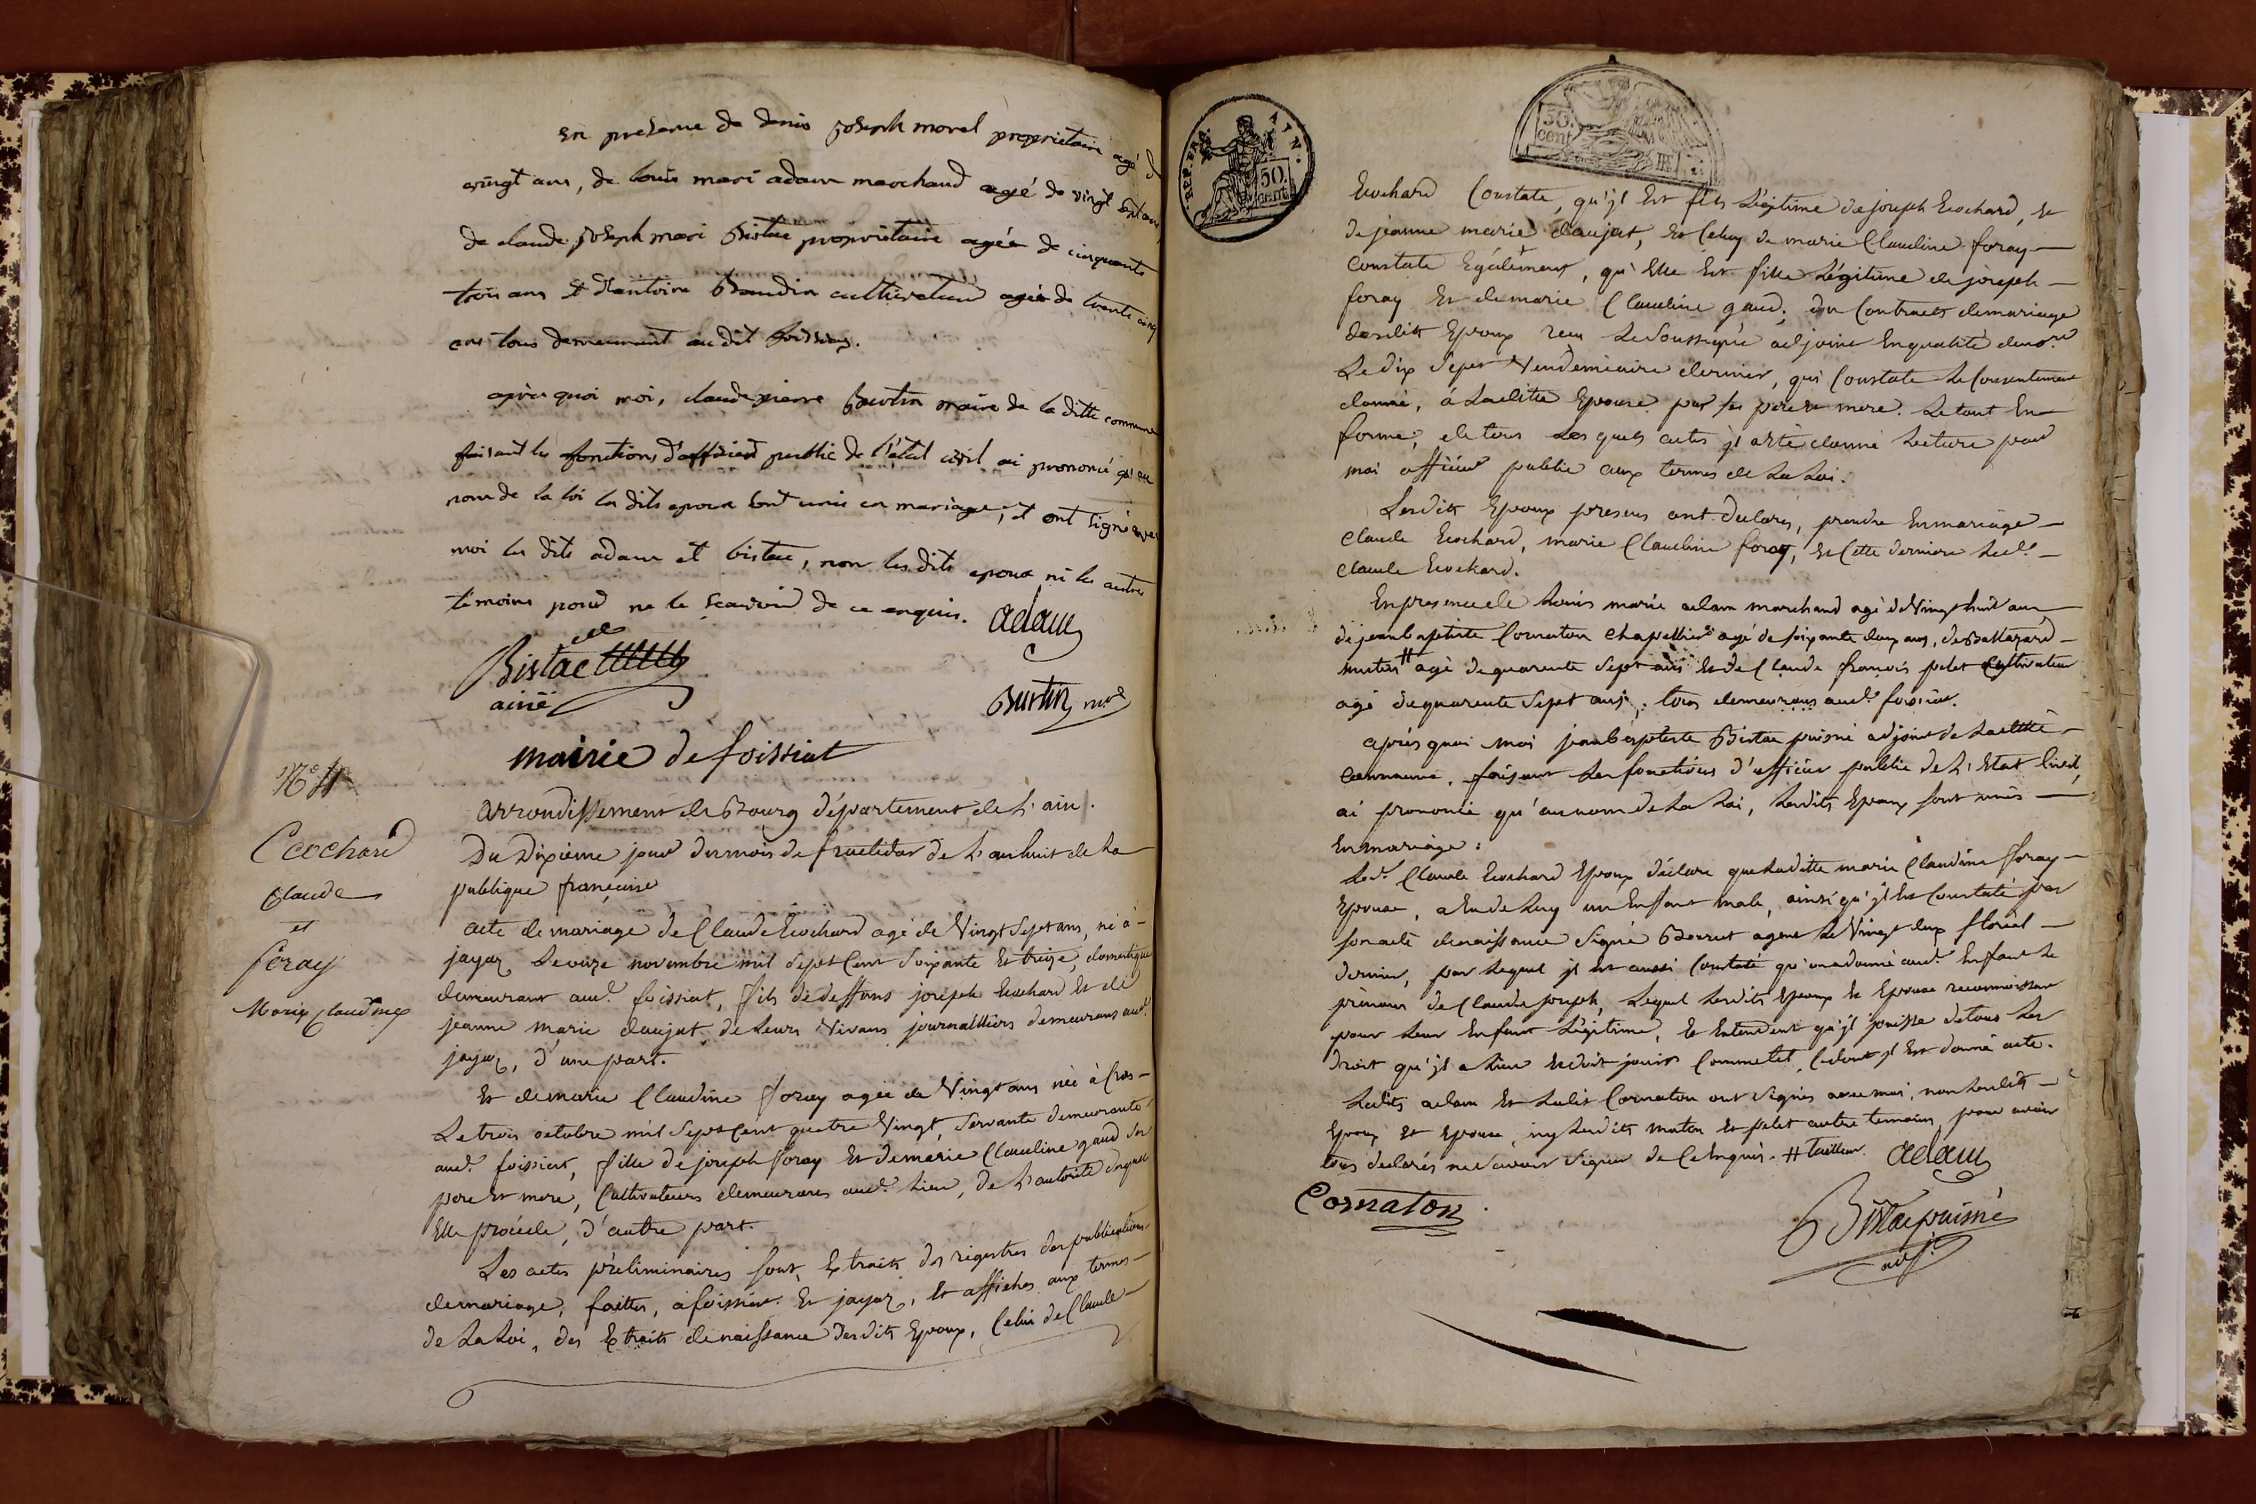 En presence de denis joseph morel propriétaire agé d
vingt ans, de louis mari adam marchand agé de vingt sept ans,
de claude joseph mari Bistac propriétaire agée de cinquante
trois ans et d'antoine Baudin cultivateur agée de trente cinq
ans tous demeurant au dit foissiat.
après quoi moi, claude pierre Burtin maire de la ditte commune
faisant les fonctions d'officier public de l'état civil ai prononcé qu'au
nom de la loi les dits epoux sont unis en mariage, et ont signé avec
moi les dits adam et bistac, non les dits epoux ni les autres
témoins pour ne le scavoir de ce enquis.
adam
Bistac
ainé
Burtin
mairie de foissiat
arrondissement de Bourg département de L'ain.
Du Dixieme jour du mois de fructidor de L'an huit de La
publique françoise
Ecochard
Claude
et
foray
Marie Claudine
acte de mariage de Claude Ecochard agé de Vingt Sept ans, né à
jayat Le onze novembre mil Sept Cent Soixante et treize, domestique
demeurant aud. foissiat, fils de deffuns joseph Ecochard Et de
jeanne marie daujat de Leurs Vivans journalliers demeurans aud.
jayat, d'une part.
Et de marie Claudine foray agée de Vingt ans née à Cras
Le trois octobre mil Sept Cent quatre Vingt, Servante demeurante
aud. foissiat, fille de joseph foray Et de marie Claudine gaud Ses
pere Et mere, Cultivateurs demeurans aud. Lieu, de L'autorité desquels
Elle procede, d'autre part.
Les actes préliminaires sont, Extraits des registres des publications
de mariage, faittes, à foissiat Et jayat, Et affichés aux termes
de La Loi, des Extraits de naissance desdits Epoux, Celui de Claude
REP. FRA. 50. cent.
50. cent.
Ecochard Constate, qu'jl Est fils Légitime de joseph Ecochard, Et
de jeanne marie daujat, Et Celuy de marie Claudine foray
Constate Egalement, qu'Elle Est fille Légitime de joseph
foray Et de marie Claudine gaud, du Contract de mariage
desdits Epoux recu Le Soussigné adjoint En qualité de no.re
Le dix Sept Vendemiaire dernier, qui Constate Le Consentement
donné, à Laditte Epouse par ses pere Et mere. Le tout En
forme, de tous Les quels actes jl a été donné Lecture par
moi officier public aux termes de La Loi.
Lesdits Epoux presens ont déclarés, prendre En mariage
Claude Ecochard, marie Claudine foray, Et Cette derniere Led.
Claude Ecochard.
En presence de Louis marie adam marchand agé de Vingt huit ans
de jean baptiste Cornaton Chapellier agé de soixante deux ans, de Baltazard
muton # agé de quarente Sept ans Et de Claude françois pelet Cultivateur
agé de quarente Sept ans, tous demeurans aud. foissiat.
après quoi moi jean baptiste Bistac puisné adjoint de Laditte
Commune, faisant Les fonctions d'officier public de L'Etat Civil,
ai prononcé qu'au nom de La Loi, Lesdits Epoux sont unis
En mariage :
Led. Claude Ecochard Epoux déclare que Laditte marie Claudine foray
Epouse, a Eu de Luy un Enfant male, ainsi qu'jl Est Constaté par
son acte de naissance Signé Borrut agent Le Vingt deux floreal
dernier, par Lequel jl Est aussi Constaté qu'on a donné aud. Enfant Le
prénom de Claude joseph, Lequel Lesdits Epoux Et Epouse reconnoissent
pour Leur Enfant Légitime, Et Entendent qu'jl jouisse de tous Les
droit qu'jl a Lieu Et doit jouir Comme tel, Ce dont jl Est donné acte.
Lesdits adam Et Ledit Cornaton ont Signés avec moi, non Lesdits
Epoux Et Epouse, ny Lesdits muton Et pelet autre temoins, pour avoir
tous declarés ne Savoir Signer de Ce Enquis. # tailleur.
adam
Cornaton
Bistac puisné
adj.